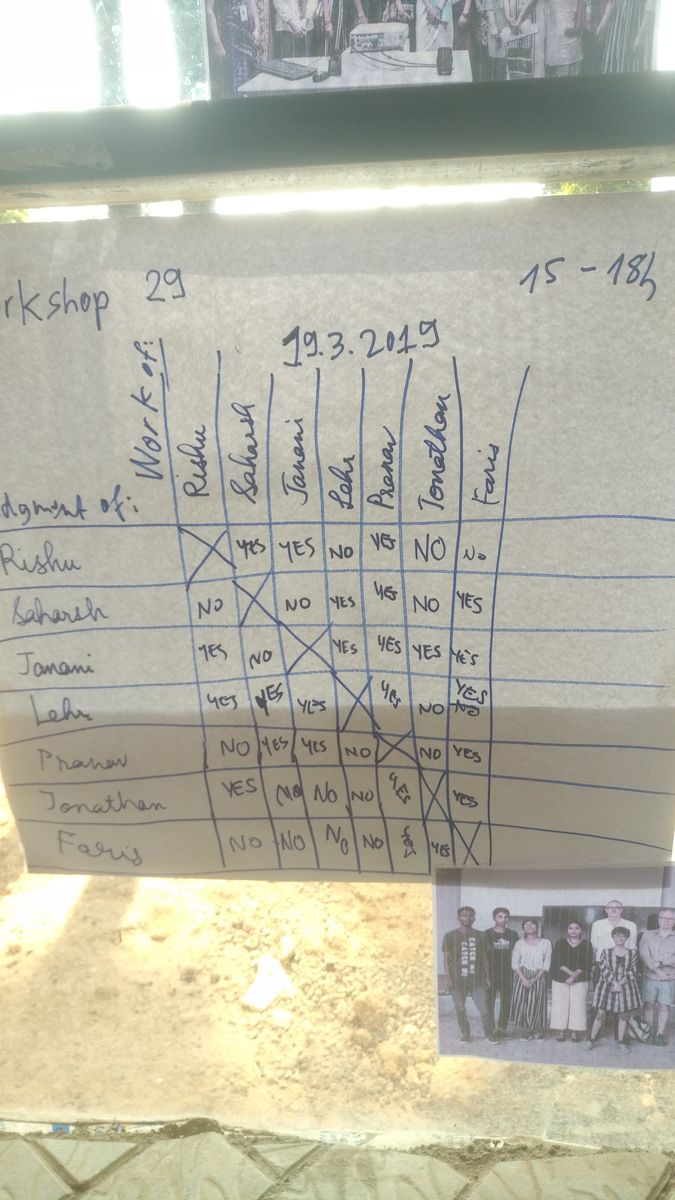 rkshop 29 15 - 18h
19.3.2019
Work of:
Rishu Saharsh Janani Lehr Pranav Jonathan Faris
dgment of:
Rishu YES YES NO YES NO NO
Saharsh NO NO YES YES NO YES
Janani YES NO YES YES YES YES
Lehr YES YES YES YES NO YES NO
Pranav NO YES YES NO NO YES
Jonathan YES NO NO NO YES YES
Faris NO NO NO NO YES YES